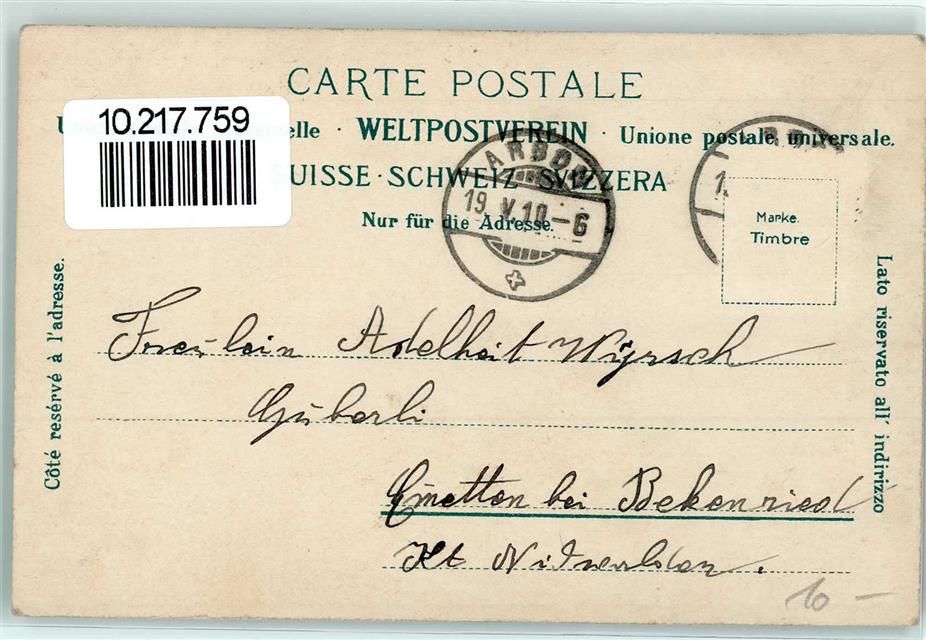 CARTE POSTALE
10.217.759
elle · WELTPOSTVEREIN · Unione postale universale.
SUISSE · SCHWEIZ · SVIZZERA
Nur für die Adresse.
ARBON
19. V. 10 – 6
Marke.
Timbre
Côté resérvé à l'adresse.
Lato riservato all' indirizzo
Freulein Adelheit Wyrsch
Guberli
Emetten bei Bekenried
Kt Nidwalden.
10 –